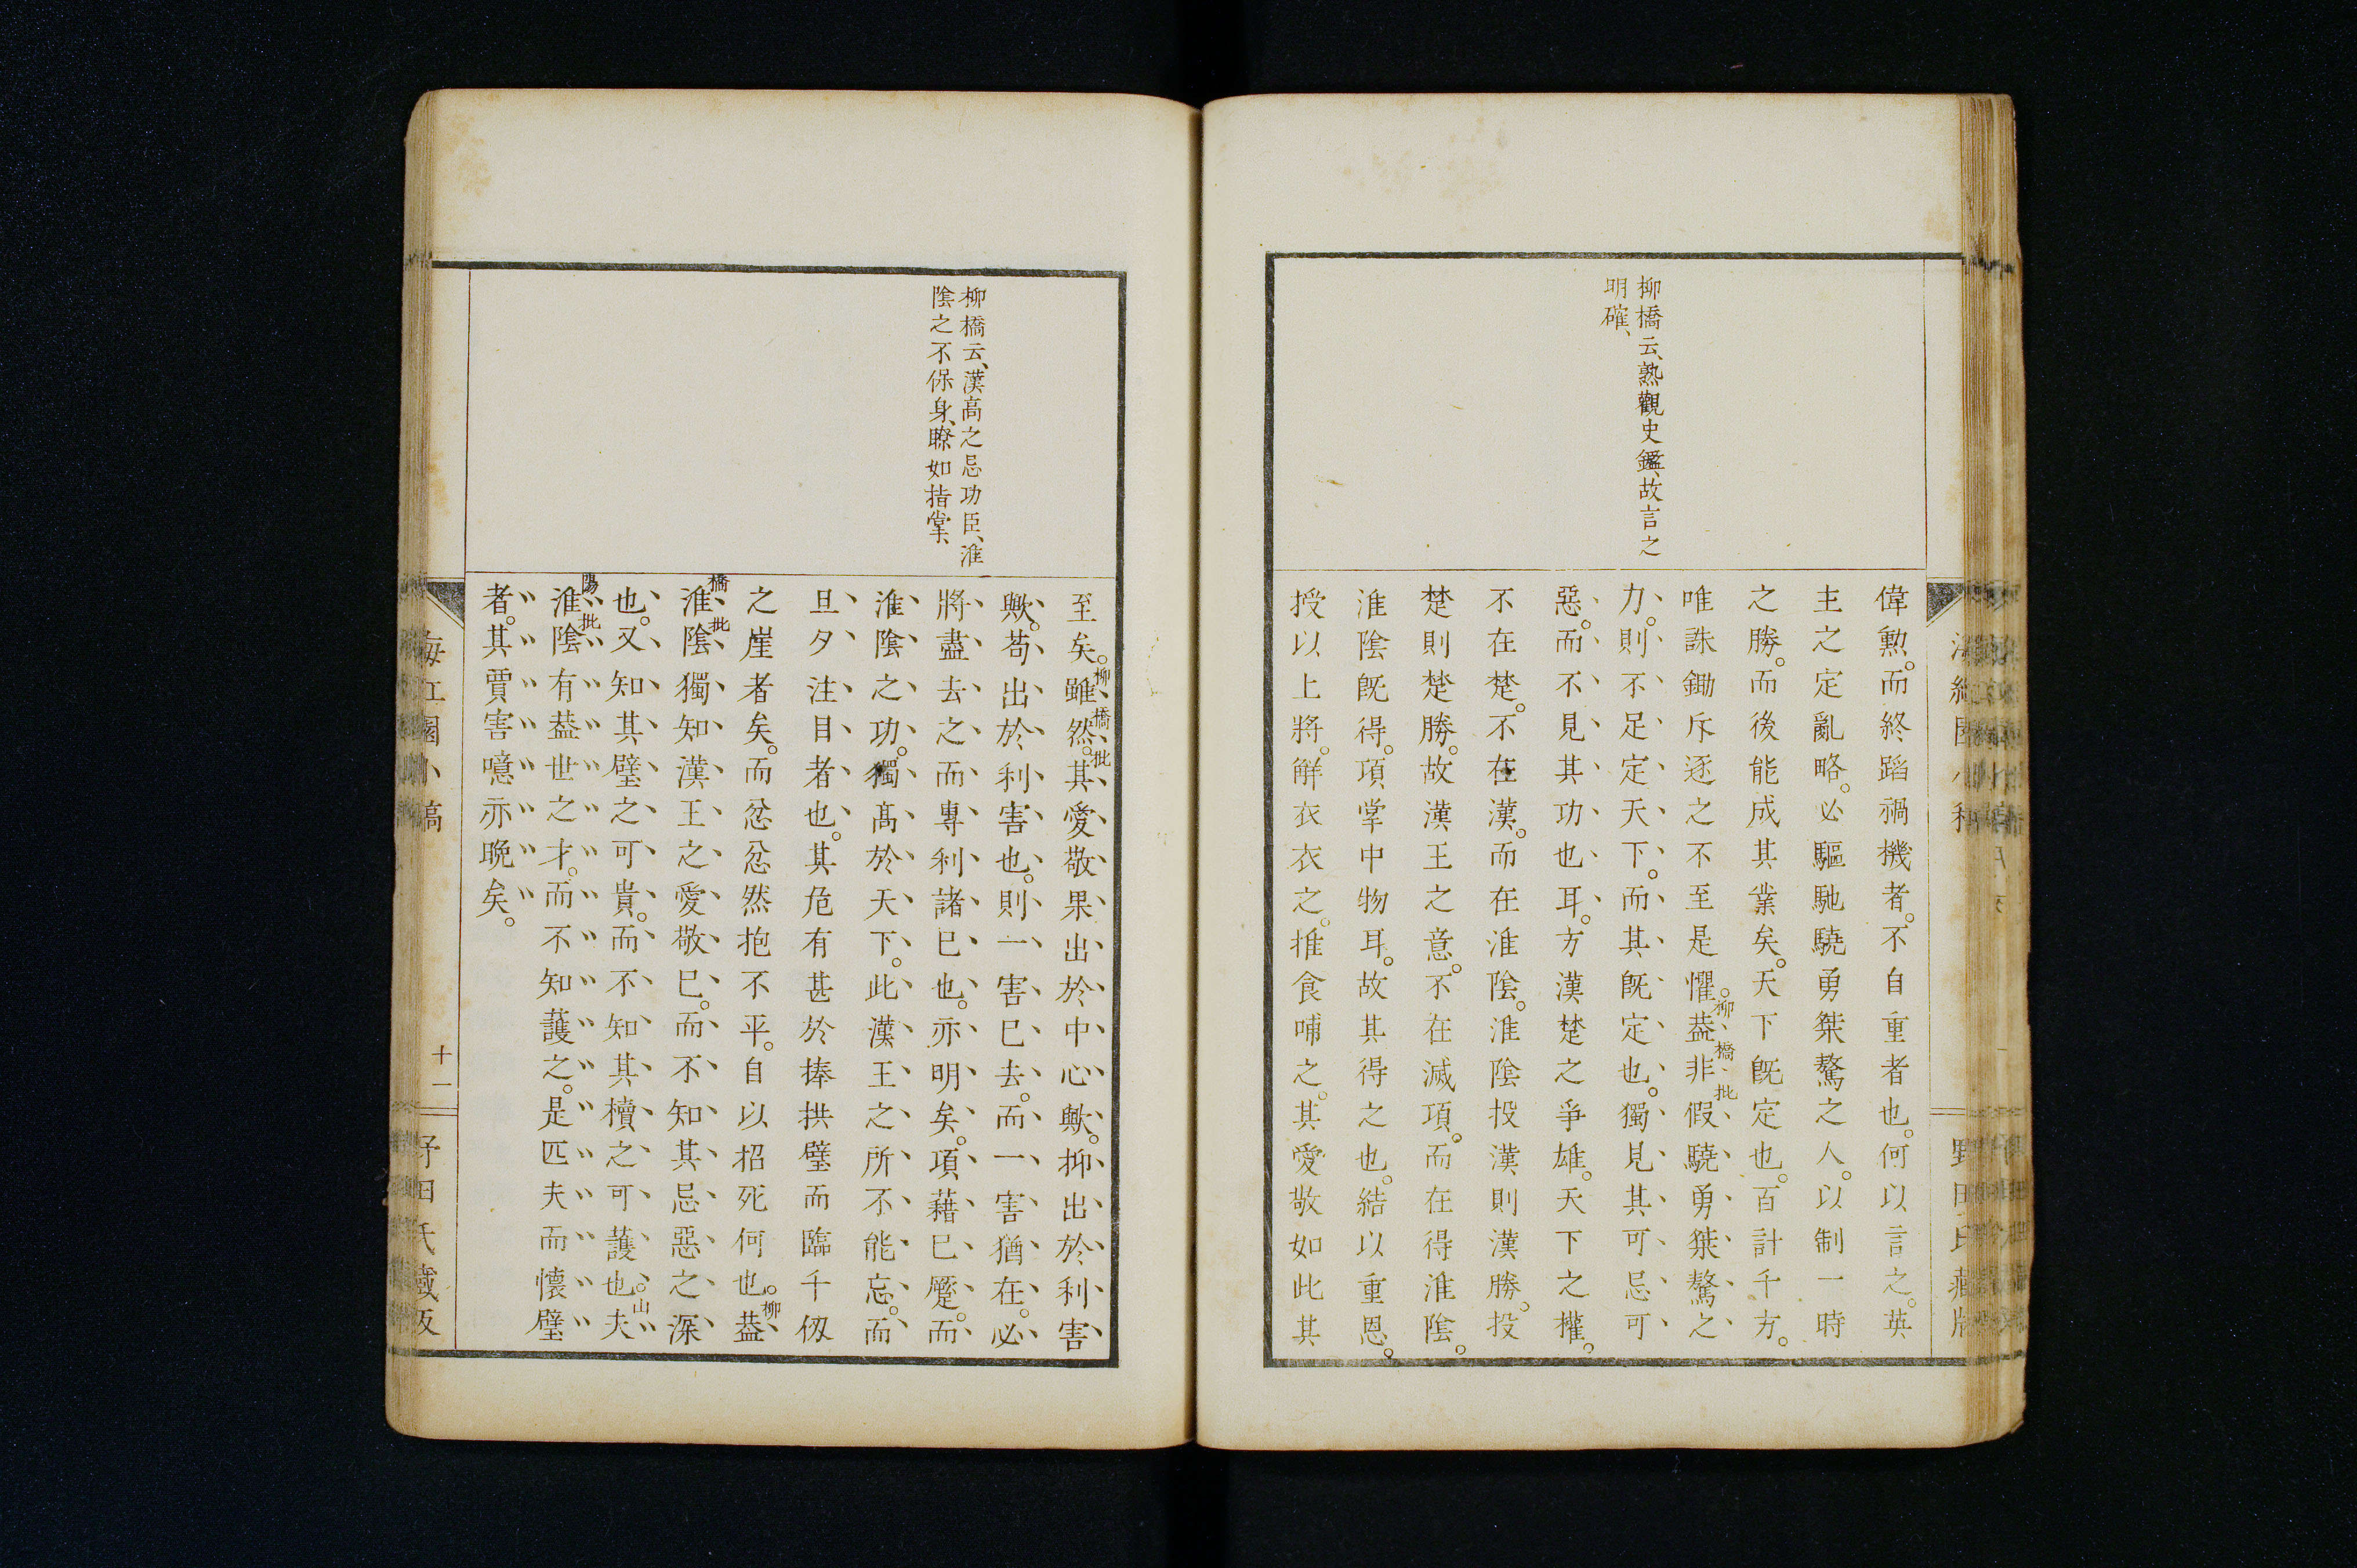 柳橋云、熟觀史鑑、故言之
明確、
偉勲。而終蹈禍機者。不自重者也。何以言之。英
主之定亂略。必驅馳驍勇桀驁之人。以制一時
之勝。而後能成其業矣。天下既定也。百計千方。
唯誅鋤斥逐之不至是懼。蓋非假驍勇桀驁之
柳橋批
力。則不足定天下。而其既定也。獨見其可忌可
惡。而不見其功也耳。方漢楚之爭雄。天下之權。
不在楚。不在漢。而在淮陰。淮陰投漢則漢勝。投
楚則楚勝。故漢王之意。不在滅項。而在得淮陰。
淮陰既得。項掌中物耳。故其得之也。結以重恩。
授以上將。解衣衣之。推食哺之。其愛敬如此其
柳橋云、漢高之忌功臣、淮
陰之不保身、瞭如指掌、
至矣。雖然。其愛敬果出於中心歟。抑出於利害
柳橋批
歟。苟出於利害也。則一害已去。而一害猶在。必
將盡去之而專利諸已也。亦明矣。項藉已蹙。而
淮陰之功。獨高於天下。此漢王之所不能忘。而
旦夕注目者也。其危有甚於捧拱璧而臨千仭
之崖者矣。而忿忿然抱不平。自以招死何也。蓋
柳橋批
淮陰獨知漢王之愛敬已。而不知其忌惡之深
也。又知其璧之可貴。而不知其櫝之可護也。夫
山陽批
淮陰有蓋世之才。而不知護之。是匹夫而懷璧
者。其賈害噫亦晩矣。
十一